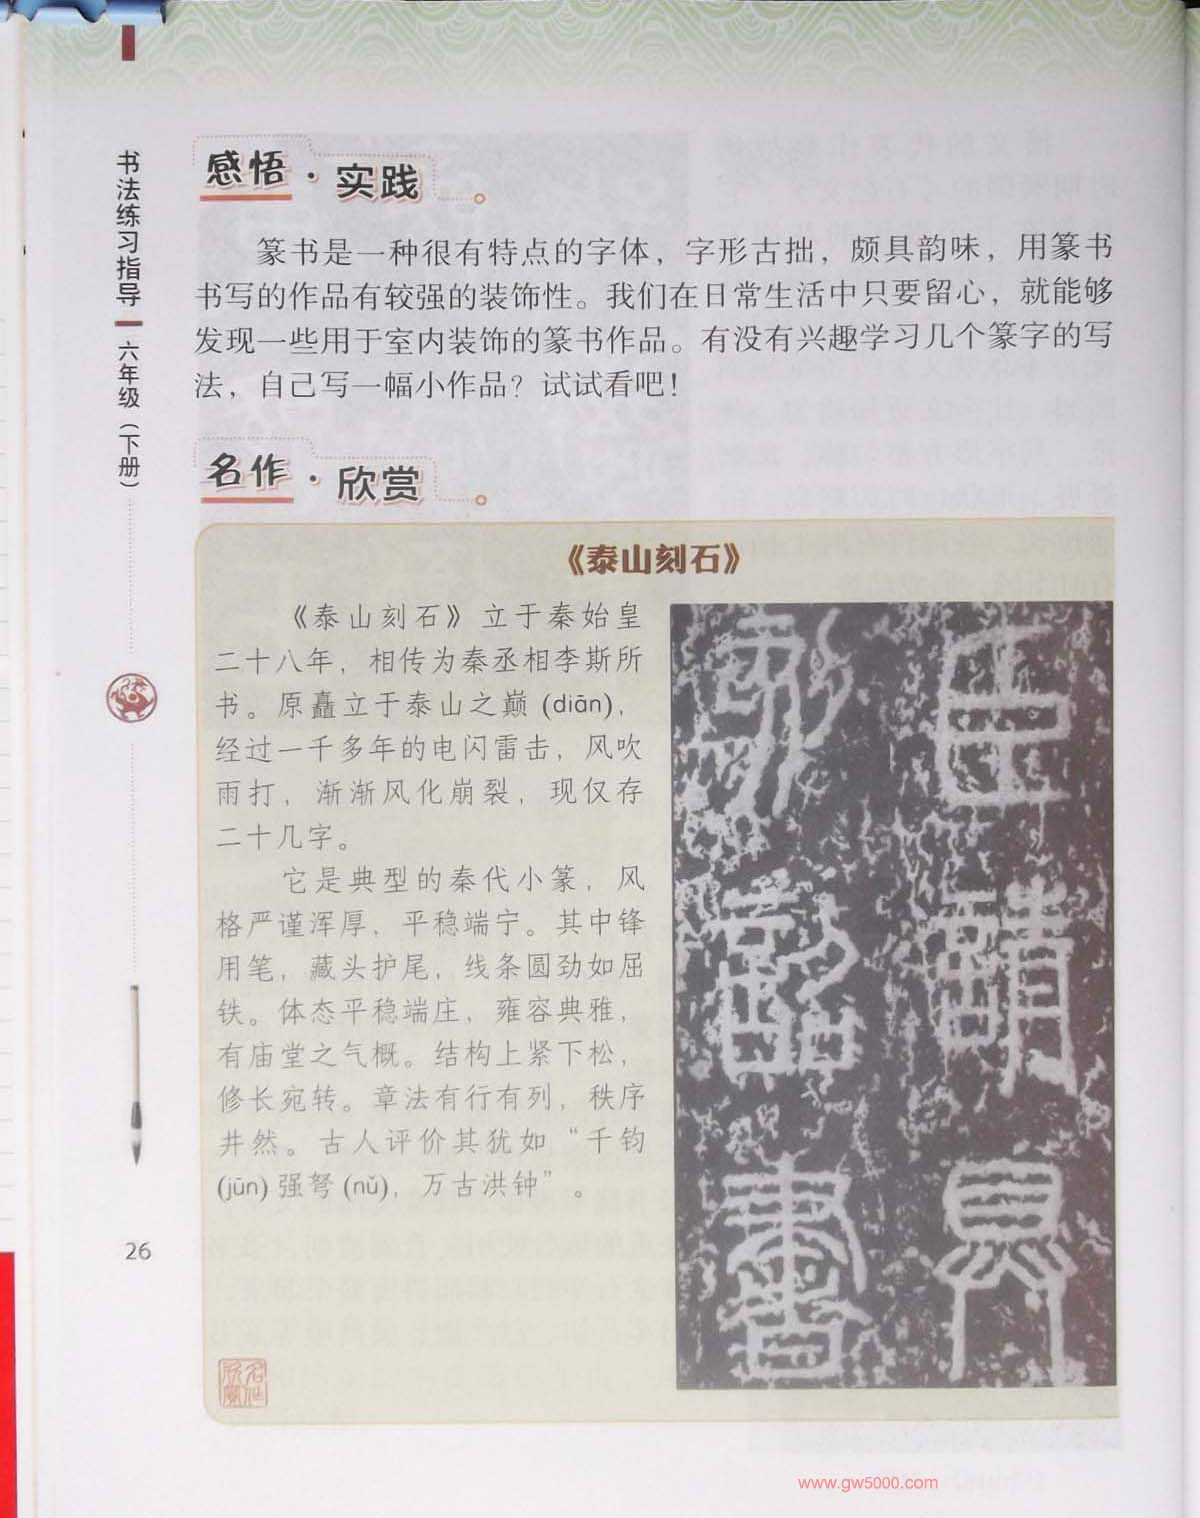 书法练习指导
六年级（下册）
26
感悟·实践
篆书是一种很有特点的字体，字形古拙，颇具韵味，用篆书
书写的作品有较强的装饰性。我们在日常生活中只要留心，就能够
发现一些用于室内装饰的篆书作品。有没有兴趣学习几个篆字的写
法，自己写一幅小作品？试试看吧！
名作·欣赏
《泰山刻石》
《泰山刻石》立于秦始皇
二十八年，相传为秦丞相李斯所
书。原矗立于泰山之巅 (diān)，
经过一千多年的电闪雷击，风吹
雨打，渐渐风化崩裂，现仅存
二十几字。
它是典型的秦代小篆，风
格严谨浑厚，平稳端宁。其中锋
用笔，藏头护尾，线条圆劲如屈
铁。体态平稳端庄，雍容典雅，
有庙堂之气概。结构上紧下松，
修长宛转。章法有行有列，秩序
井然。古人评价其犹如“千钧
(jūn) 强弩 (nǔ)，万古洪钟”。
臣请具
刻诏书
名作
欣赏
www.gw5000.com